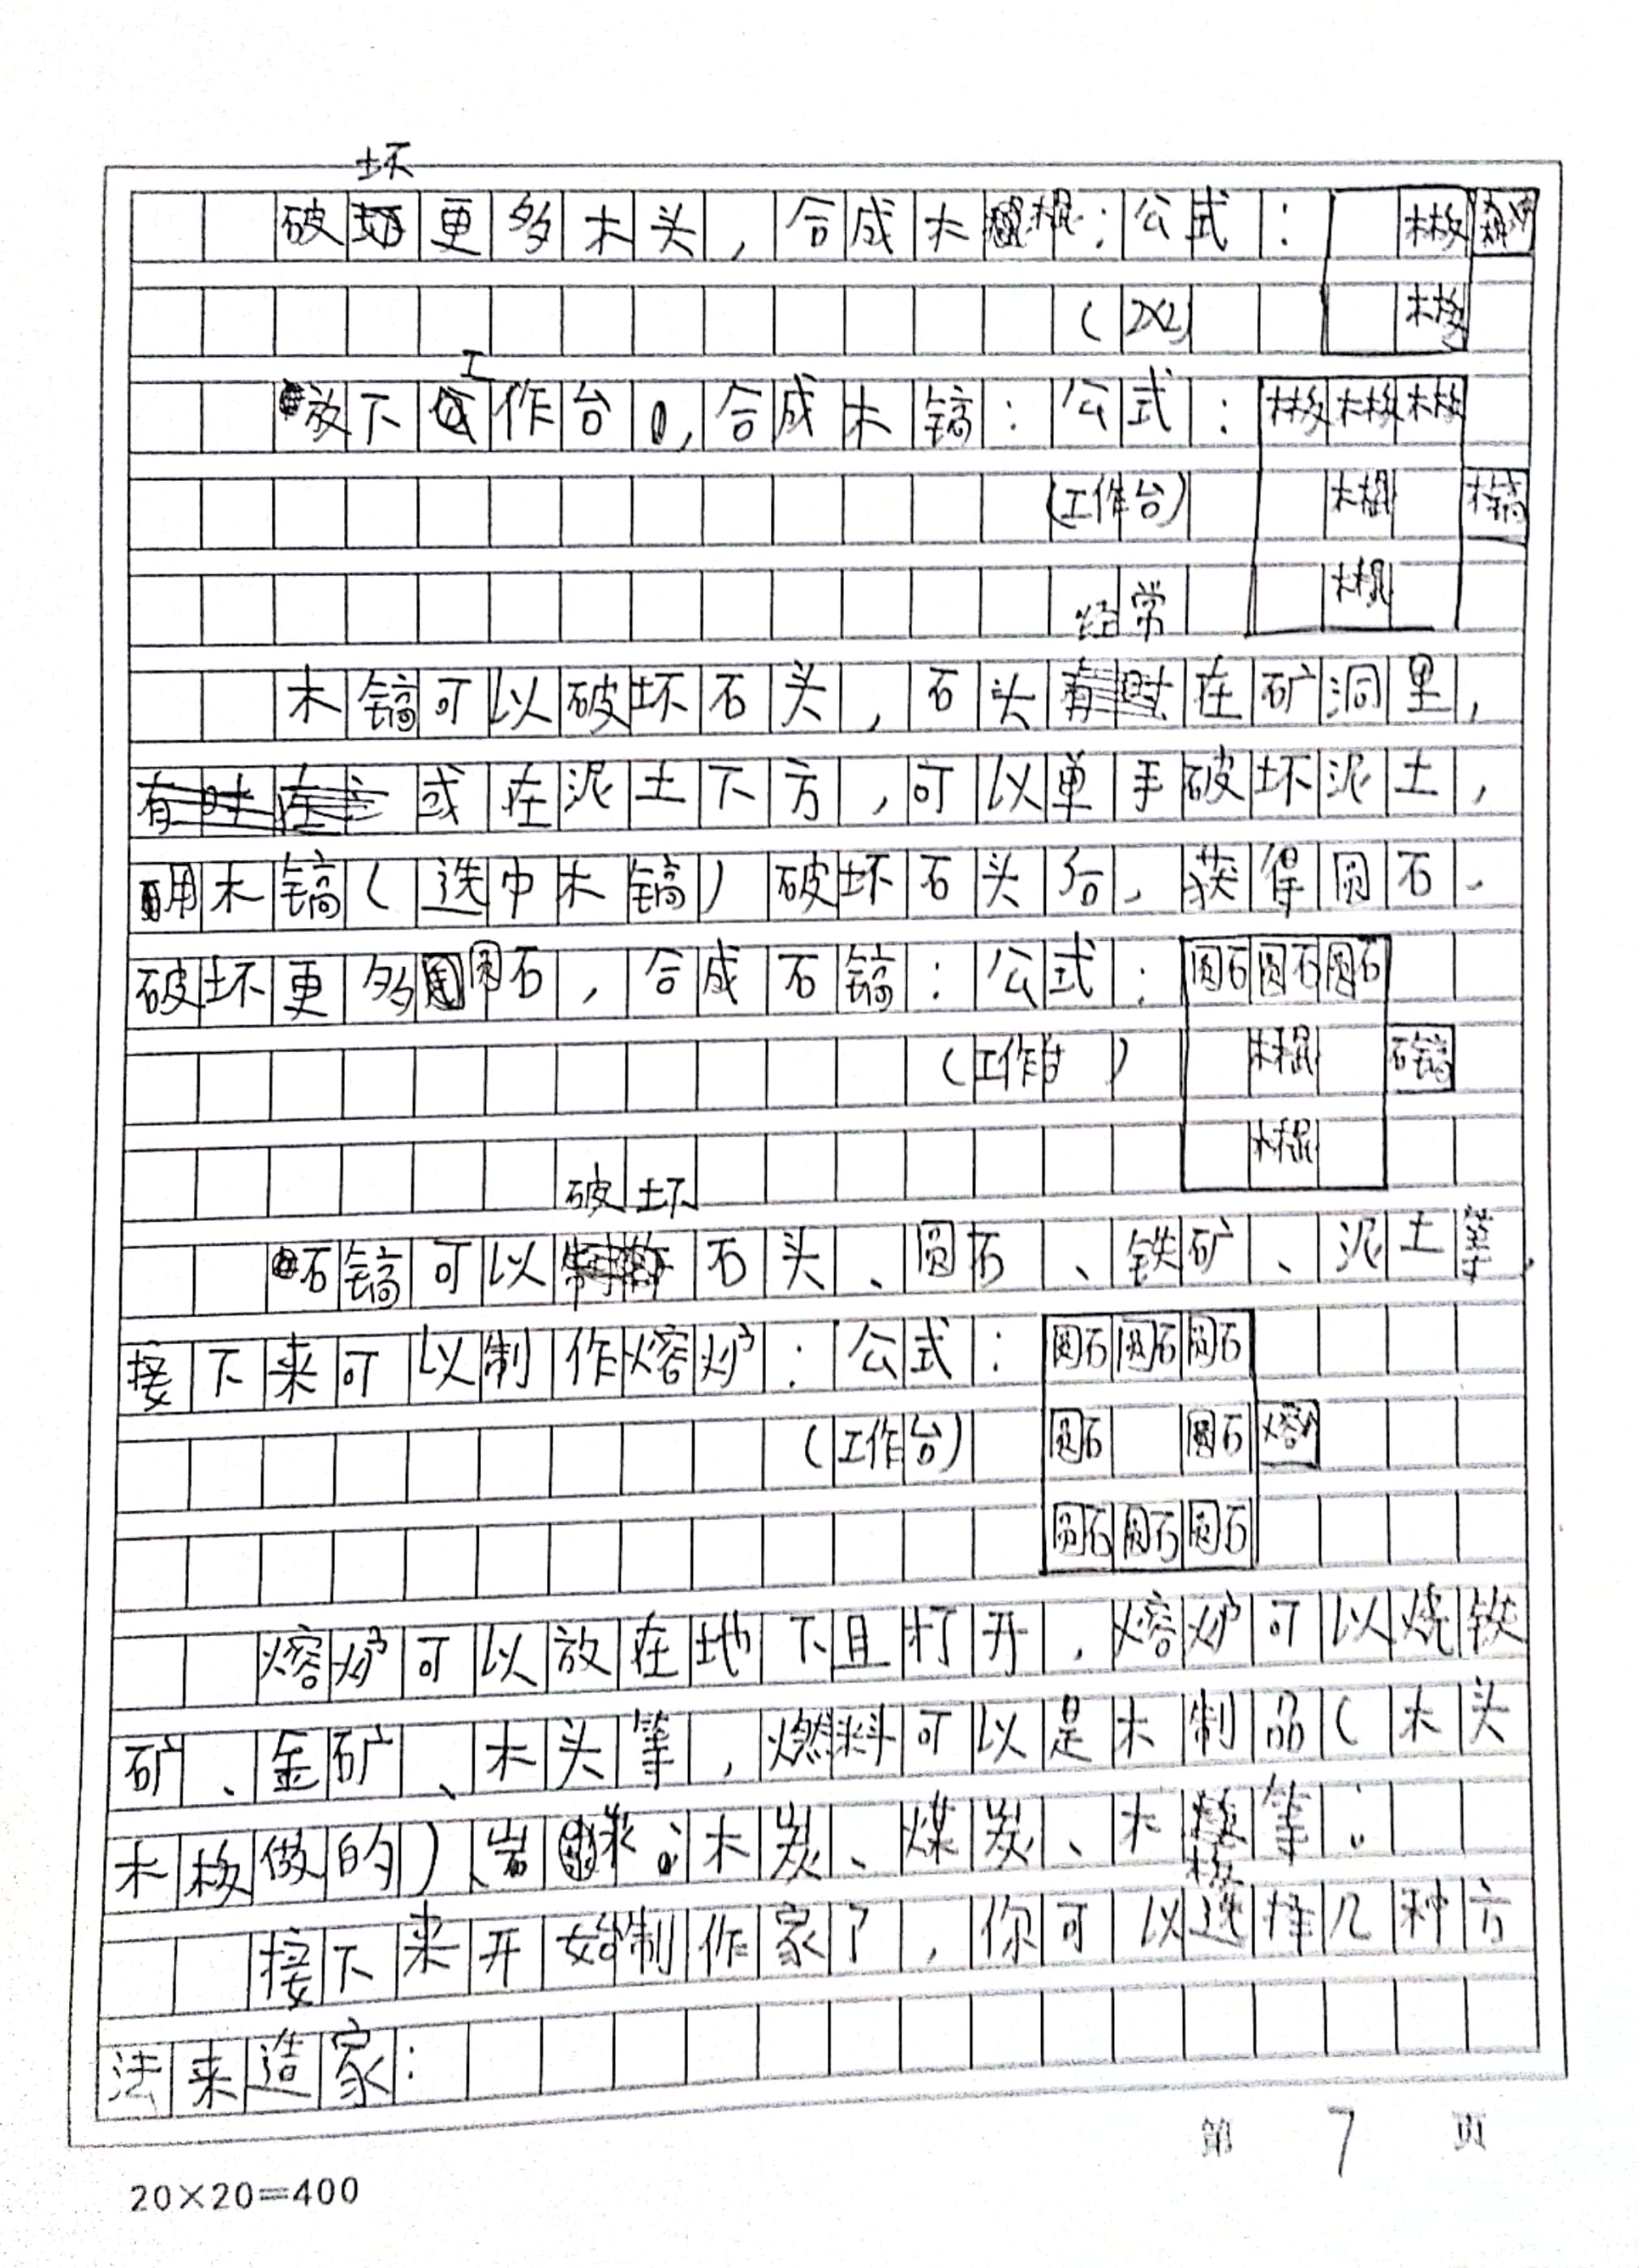 坏
破更多木头，合成木棍：公式：木板
(2X2) 木板
工
放下作台，合成木镐：公式：木板木板木板
(工作台) 木棍 木镐
木棍
经常
木镐可以破坏石头，石头在矿洞里，
或在泥土下方，可以单手破坏泥土，
用木镐(选中木镐)破坏石头后，获得圆石.
破坏更多圆石，合成石镐：公式：圆石圆石圆石
(工作台) 木棍 石镐
木棍
破坏
石镐可以石头、圆石、铁矿、泥土等，
接下来可以制作熔炉：公式：圆石圆石圆石
(工作台) 圆石 圆石 熔炉
圆石圆石圆石
熔炉可以放在地下且打开，熔炉可以烧铁
矿、金矿、木头等，燃料可以是木制品(木头
木板做的)、岩浆、木炭、煤炭、木板等：
接下来开始制作家了，你可以选择几种方
法来造家：
第 7 页
20×20=400